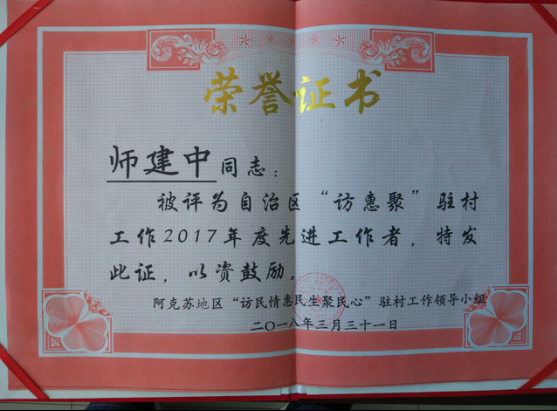 荣誉证书
师建中同志：
被评为自治区“访惠聚”驻村
工作2017年度先进工作者，特发
此证，以资鼓励。
阿克苏地区“访民情惠民生聚民心”驻村工作领导小组
二〇一八年三月三十一日